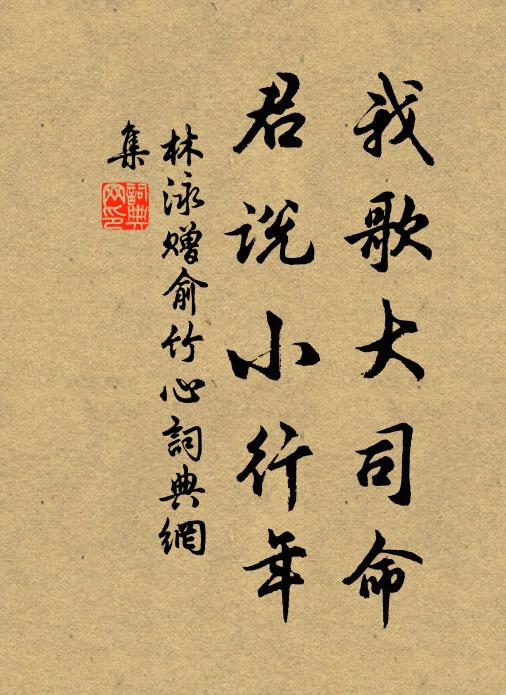 我歌大司命
君说小行年
林泳赠俞竹心词典網
集
詞典网印